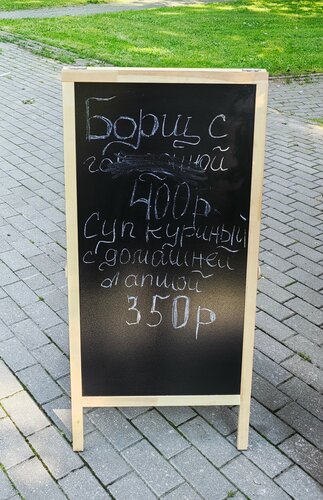 Борщ с
400р
Суп куриный
с домашней
лапшой
350р